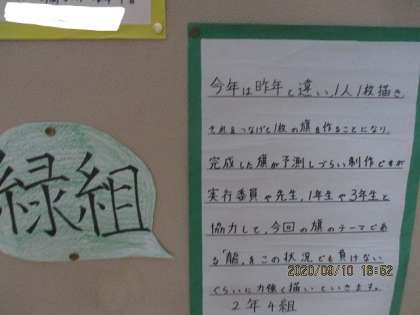 緑組
今年は昨年と違い、1人1枚描き
それをつなげて1枚の旗を作ることになり
完成した旗が予測しづらい制作ですが
実行委員や先生、1年生や3年生と
協力して、今回の旗のテーマであ
る「龍」をこの状況でも負けない
くらいに力強く描いていきます。
2年4組
2020/09/10 16:52